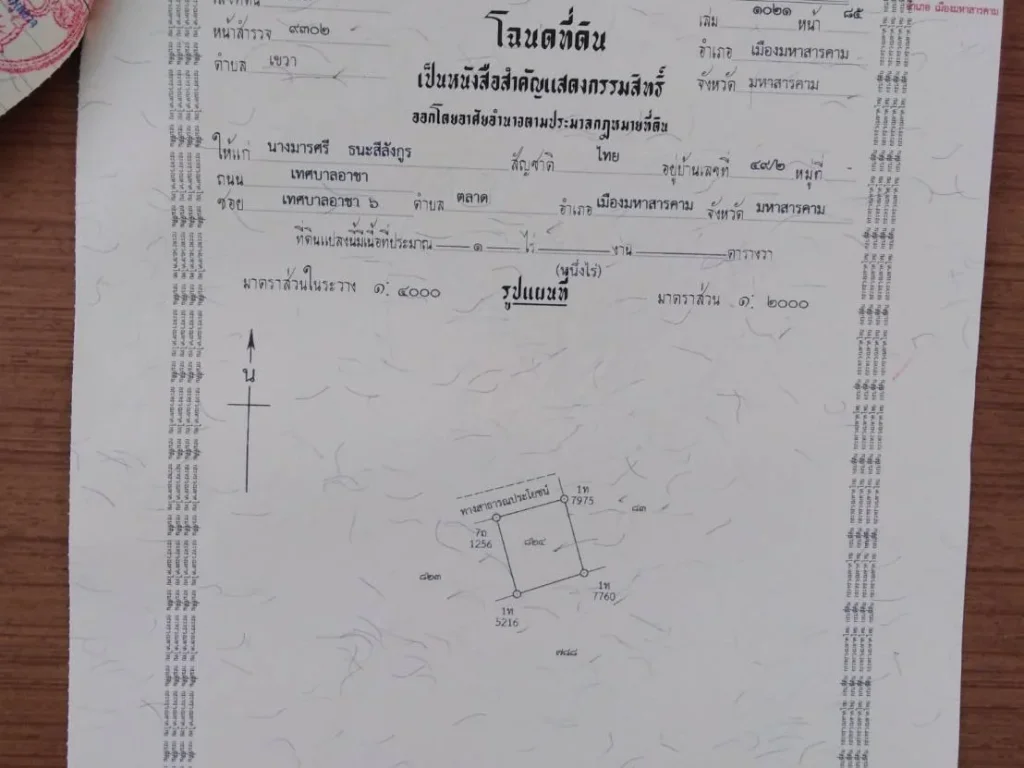 เล่ม ๑๐๒๑ หน้า ๘๕
หน้าสำรวจ ๙๓๐๒
โฉนดที่ดิน
อำเภอ เมืองมหาสารคาม
ตำบล เขวา
เป็นหนังสือสำคัญแสดงกรรมสิทธิ์
จังหวัด มหาสารคาม
ออกโดยอาศัยอำนาจตามประมวลกฎหมายที่ดิน
ให้แก่ นางมารศรี ธนะสีลังกูร สัญชาติ ไทย อยู่บ้านเลขที่ ๔๙/๒ หมู่ที่
ถนน เทศบาลอาชา
ซอย เทศบาลอาชา ๖ ตำบล ตลาด อำเภอ เมืองมหาสารคาม จังหวัด มหาสารคาม
ที่ดินแปลงนี้มีเนื้อที่ประมาณ ๑ ไร่ งาน ตารางวา
(หนึ่งไร่)
มาตราส่วนในระวาง ๑: ๔๐๐๐ รูปแผนที่ มาตราส่วน ๑: ๒๐๐๐
น
ทางสาธารณประโยชน์
1ท
7975
๘๓
1256
๘๒๔
๘๒๓
1ท
7760
1ท
5216
๗๘๘